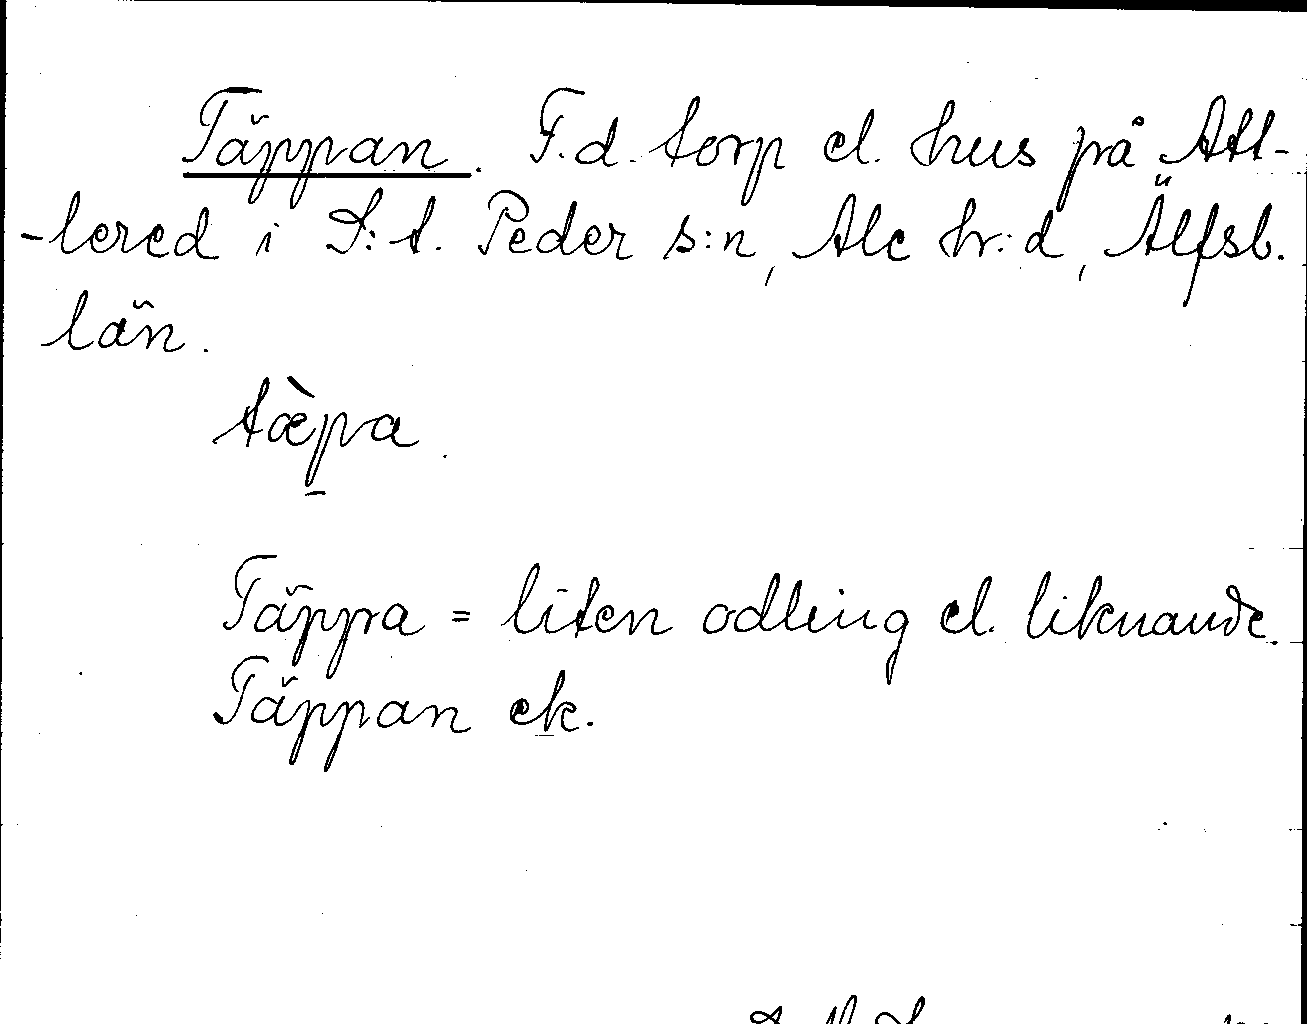 Täppan. F.d. torp el. hus på Att-
-lered i S:t. Peder s:n, Ale hr:d, Älfsb.
län.
tæ̀pa.
Täppa = liten odling el. liknande.
Täppan ek.